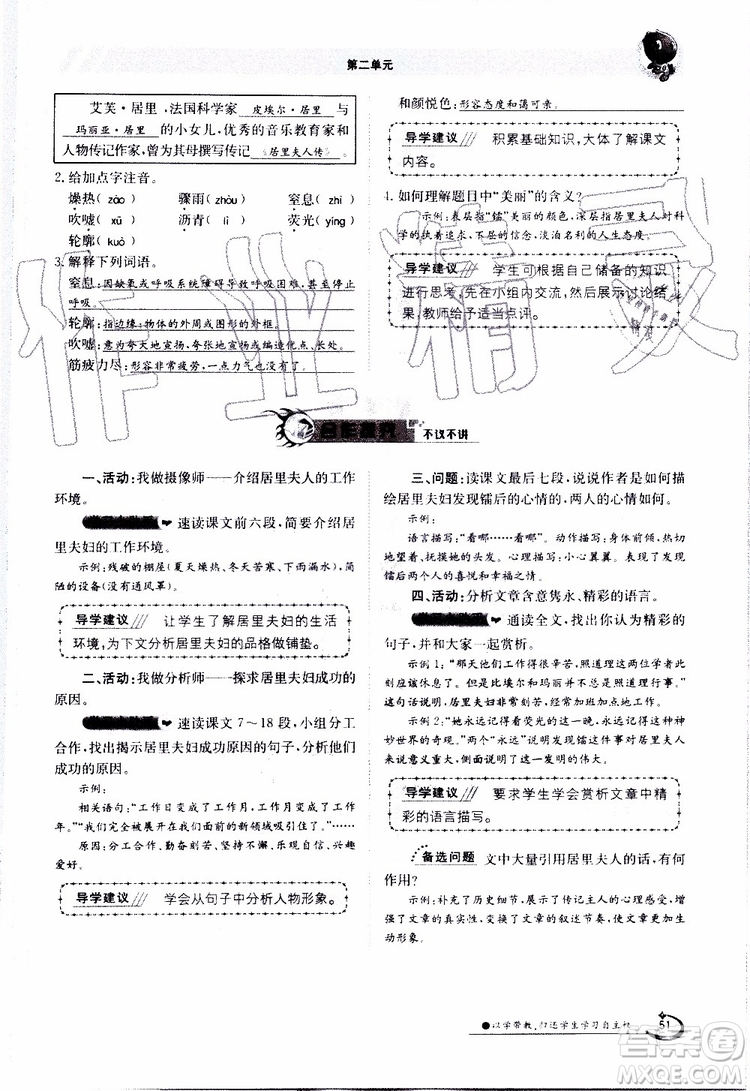 第二单元
艾芙·居里,法国科学家 皮埃尔·居里 与
玛丽亚·居里 的小女儿,优秀的音乐教育家和
人物传记作家,曾为其母撰写传记《居里夫人传》。
2. 给加点字注音。
燥热(zào) 骤雨(zhòu) 窒息(zhì)
吹嘘(xū) 沥青(lì) 荧光(yíng)
轮廓(kuò)
3. 解释下列词语。
窒息:因缺氧或呼吸系统障碍导致呼吸困难,甚至停止
呼吸。
轮廓:指边缘;物体的外周或图形的外框。
吹嘘:意为夸大地宣扬,夸张地宣扬或编造优点、长处。
筋疲力尽:形容非常疲劳,一点力气也没有了。
和颜悦色:形容态度和蔼可亲。
导学建议 积累基础知识,大体了解课文
内容。
4. 如何理解题目中“美丽”的含义?
示例:表层指“镭”美丽的颜色,深层指居里夫人对科
学的执着追求,不屈的信念,淡泊名利的人生态度。
导学建议 学生可根据自己储备的知识
进行思考,先在小组内交流,然后展示讨论结
果,教师给予适当点评。
合作探究 不议不讲
一、活动:我做摄像师——介绍居里夫人的工作
环境。
速读课文前六段,简要介绍居
里夫妇的工作环境。
示例:残破的棚屋(夏天燥热、冬天苦寒、下雨漏水),简
陋的设备(没有通风罩)
导学建议 让学生了解居里夫妇的生活
环境,为下文分析居里夫妇的品格做铺垫。
二、活动:我做分析师——探求居里夫妇成功的
原因。
速读课文7～18段,小组分工
合作,找出揭示居里夫妇成功原因的句子,分析他们
成功的原因。
示例:
相关语句:“工作日变成了工作月,工作月变成了工作
年。”“我们完全被展开在面前的新领域吸引住了……”
原因:分工合作,勤奋工作,坚持不懈,苦中作乐,兴趣
爱好。
导学建议 学会从句子中分析人物形象。
三、问题:读课文最后七段,说说作者是如何描
绘居里夫妇发现镭后的心情的,两人的心情如何。
示例:
语言描写:“看哪……看哪”。动作描写:身体前倾,热切
地望着,抚摸她的头发。心理描写:小心翼翼。表现了发现
镭后两个人的喜悦和轻松的心情。
四、活动:分析文章含意隽永、精彩的语言。
通读全文,找出你认为精彩的
句子,并和大家一起赏析。
示例1:“那天他们工作得很辛苦,照道理两位学者此
刻应该休息。但是比埃尔和玛丽不总是照道理行事。”
这句话说明居里夫妇非常刻苦,经常加班加点地工作。
示例2:“她永远记得看荧光的这一晚,永远记得这种神
妙世界的奇观。”两个“永远”说明发现镭的这一晚对他们来
来说意义重大,他们非常兴奋。
导学建议 要求学生学会赏析文章中精
彩的语言描写。
备选问题 文中大量引用居里夫人的话,有何
作用?
示例:补充了历史细节,展示了传记主人的心理感受,
增强了文章的真实性,变换了文章的叙述节奏,使文章更加生
动形象。
以学带教,归还学生学习自主权
51
作业精灵
答案圈
MXQE.COM